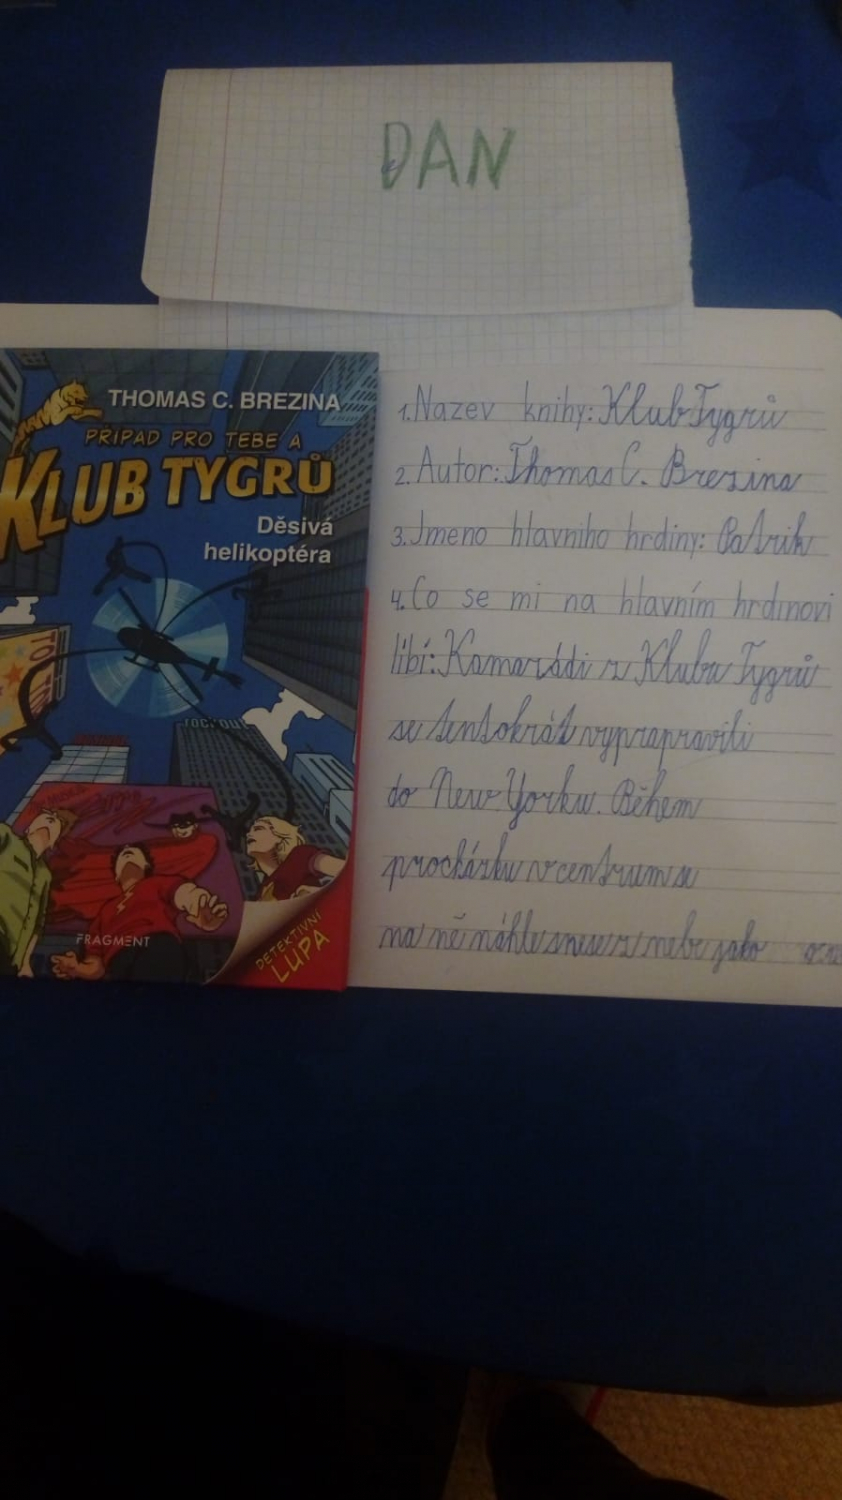 DAN
THOMAS C. BREZINA
PŘÍPAD PRO TEBE A
KLUB TYGRŮ
Děsivá
helikoptéra
FRAGMENT
DETEKTIVNÍ
LUPA
1. Nazev knihy: Klub Tygrů
2. Autor: Thomas C. Brezina
3. Jmeno hlavniho hrdiny: Patrik
4. Co se mi na hlavním hrdinovi
líbí: Kamarádi z Klubu Tygrů
se tentokrát vyprapravili
do New Yorku. Během
procházku v centrum se
na ně náhle snese z nebe jako